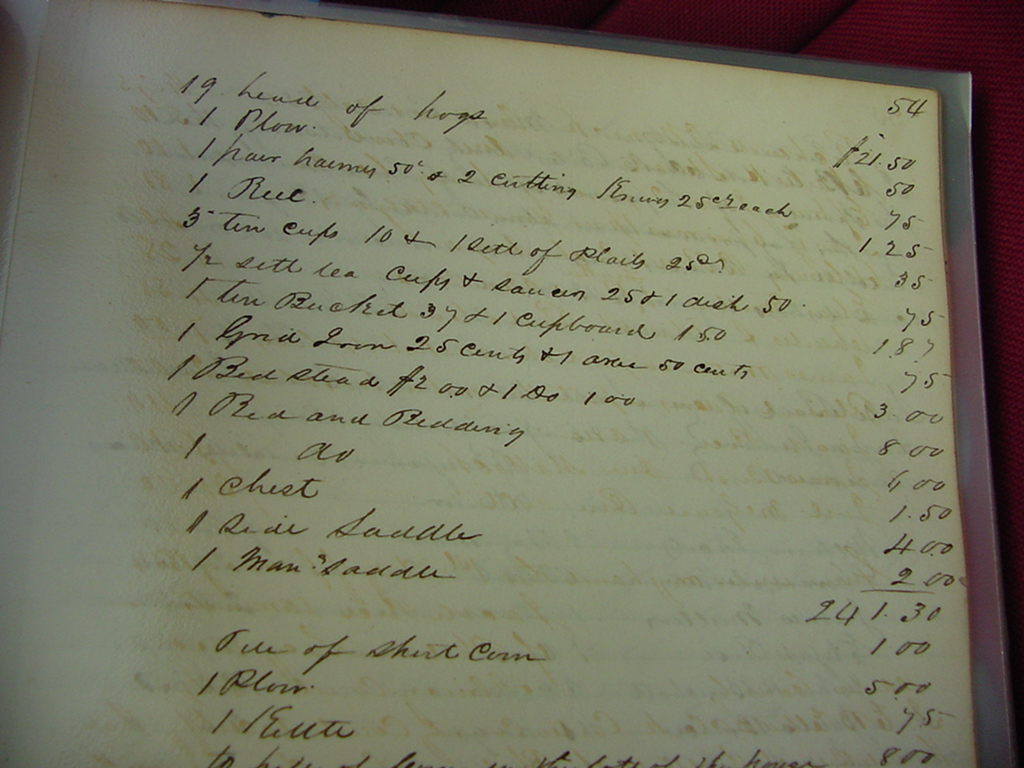 54
19 head of hogs $21.50
1 Plow. 50
1 pair haims 50 & 2 Cutting Knives 25 cts each 75
1 Reel. 1 25
3 tin cups 10 & 1 sett of Plaits 25 cts 35
½ sett tea Cups & Saucers 25 & 1 dish 50. 75
1 tin Bucket 37 & 1 Cupboard 1 50 1.87
1 Grid Iron 25 cents & 1 axe 50 cents 75
1 Bed stead $2.00 & 1 Do 1 00 3.00
1 Bed and Bedding 8 00
1 Do 5 00
1 Chest 1.50
1 Side Saddle 4.00
1 Mans Saddle 2.00
241.30
One of Corn 1 00
1 Plow. 5.00
1 Kettle 75
8 00